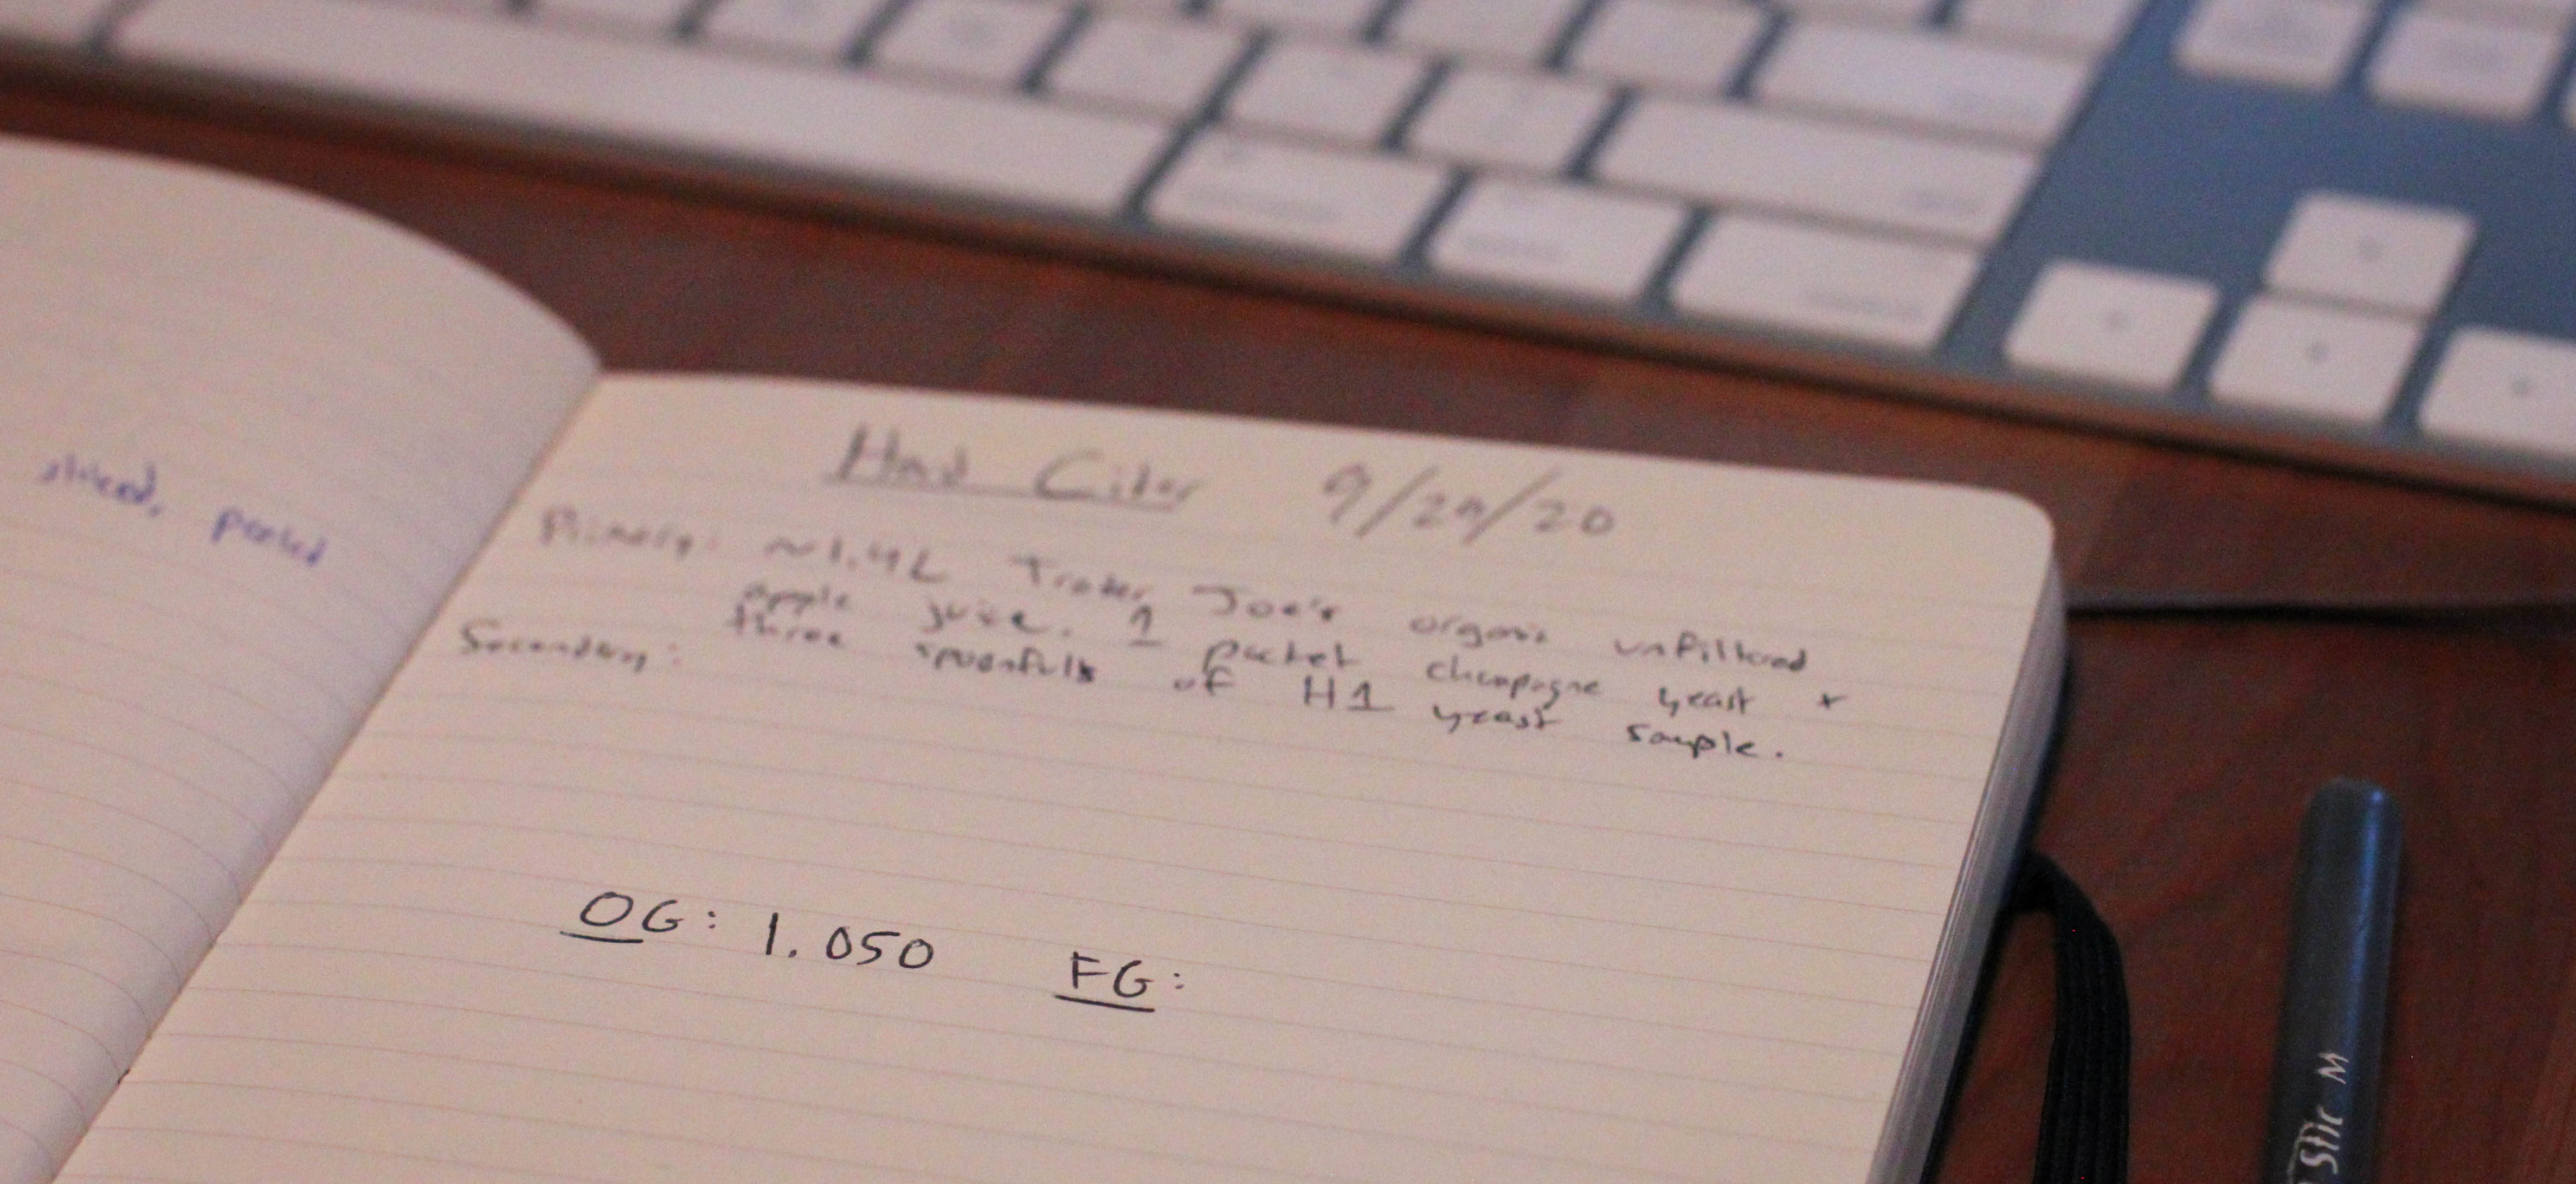 sliced, peeled
Hard Cider 9/29/20
Primary: ~1.4L Trader Joe's organic unfiltered
apple juice. 1 packet champagne yeast +
three spoonfuls of H1 yeast sample.
Secondary:
OG: 1.050 FG:
Stic M